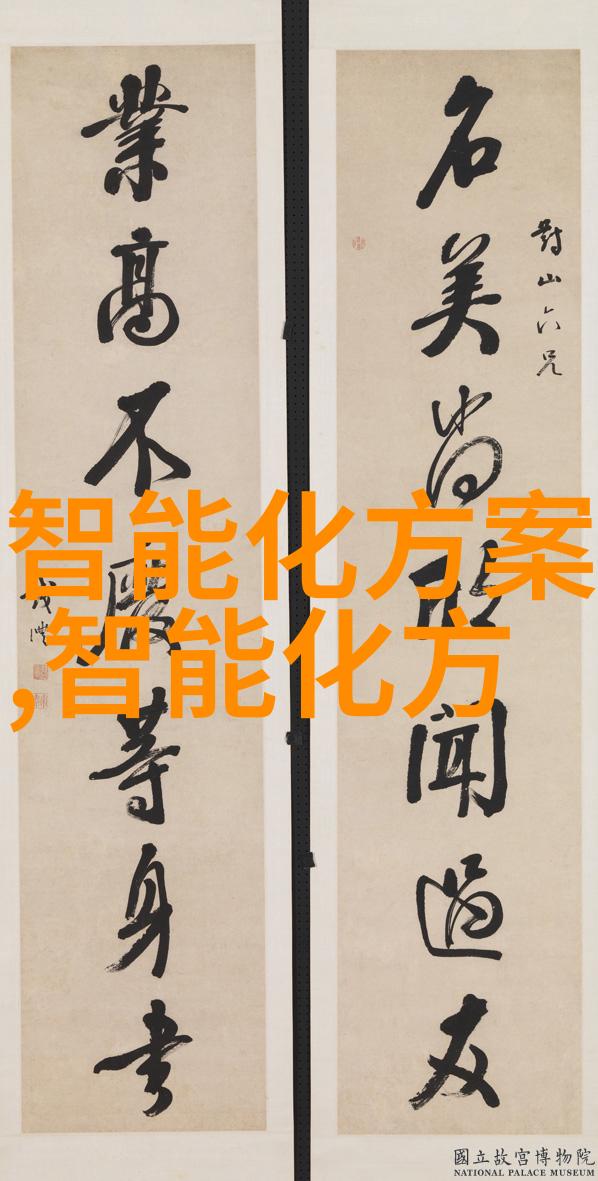 對山六兄
名美尚聞過友
業高不廢等身書
智能化方案
,智能化方
國立故宮博物院
NATIONAL PALACE MUSEUM